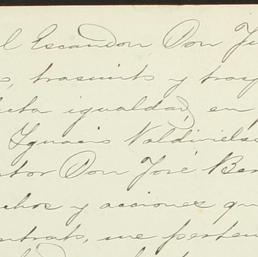 l Escandon Don Ju
s, trasunto y trasp
esta igualdad, en
Ygnacio Valdiviels
ntor Don José Ber
chos y acciones qu
ontrato, me perten